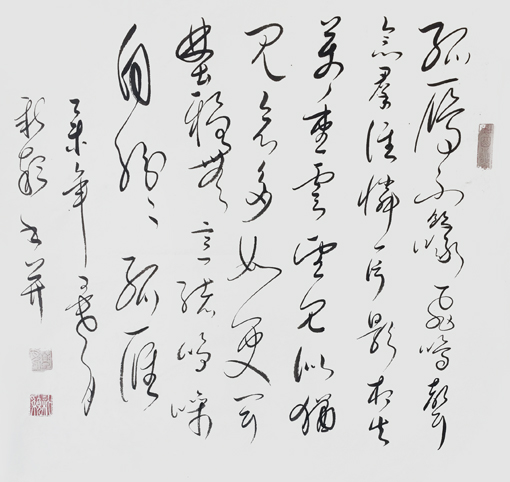 孤鴈不飲啄飛鳴聲
念羣誰憐一片影相失
萬重雲望尽似猶
見哀多如更聞
埜鴉無意緒鳴噪
自紛〻孤雁
乙未年夏月
書